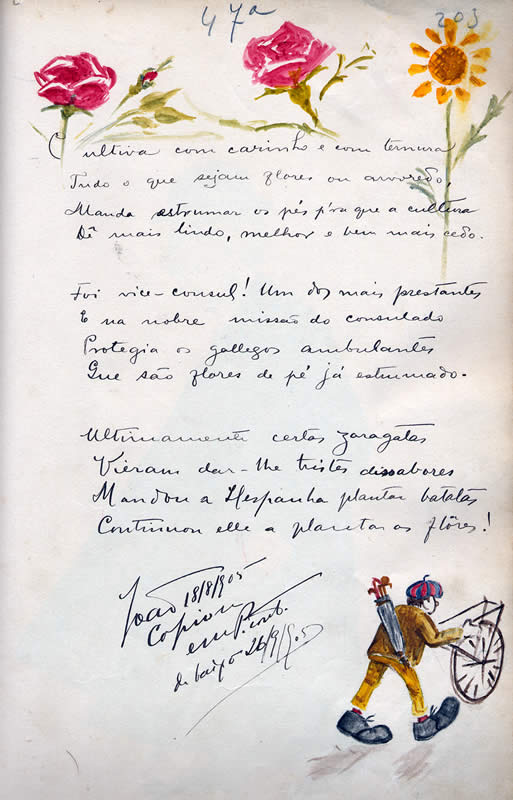 47a
203
Cultiva com carinho e com ternura
Tudo o que sejam flores ou arvoredo,
Manda estrumar os pés p'ra que a cultura
Dê mais lindo, melhor e bem mais cedo.
Foi vice-consul! Um dos mais prestantes
E na nobre missão do consulado
Protegia os gallegos ambulantes
Que são flores de pé já estrumado.
Ultimamente certas zaragatas
Vieram dar-lhe tristes dissabores
Mandou a Hespanha plantar batatas
Continuou elle a plantar as flôres!
João 18/8/905
Copiou
em
de baixo 26/9/905